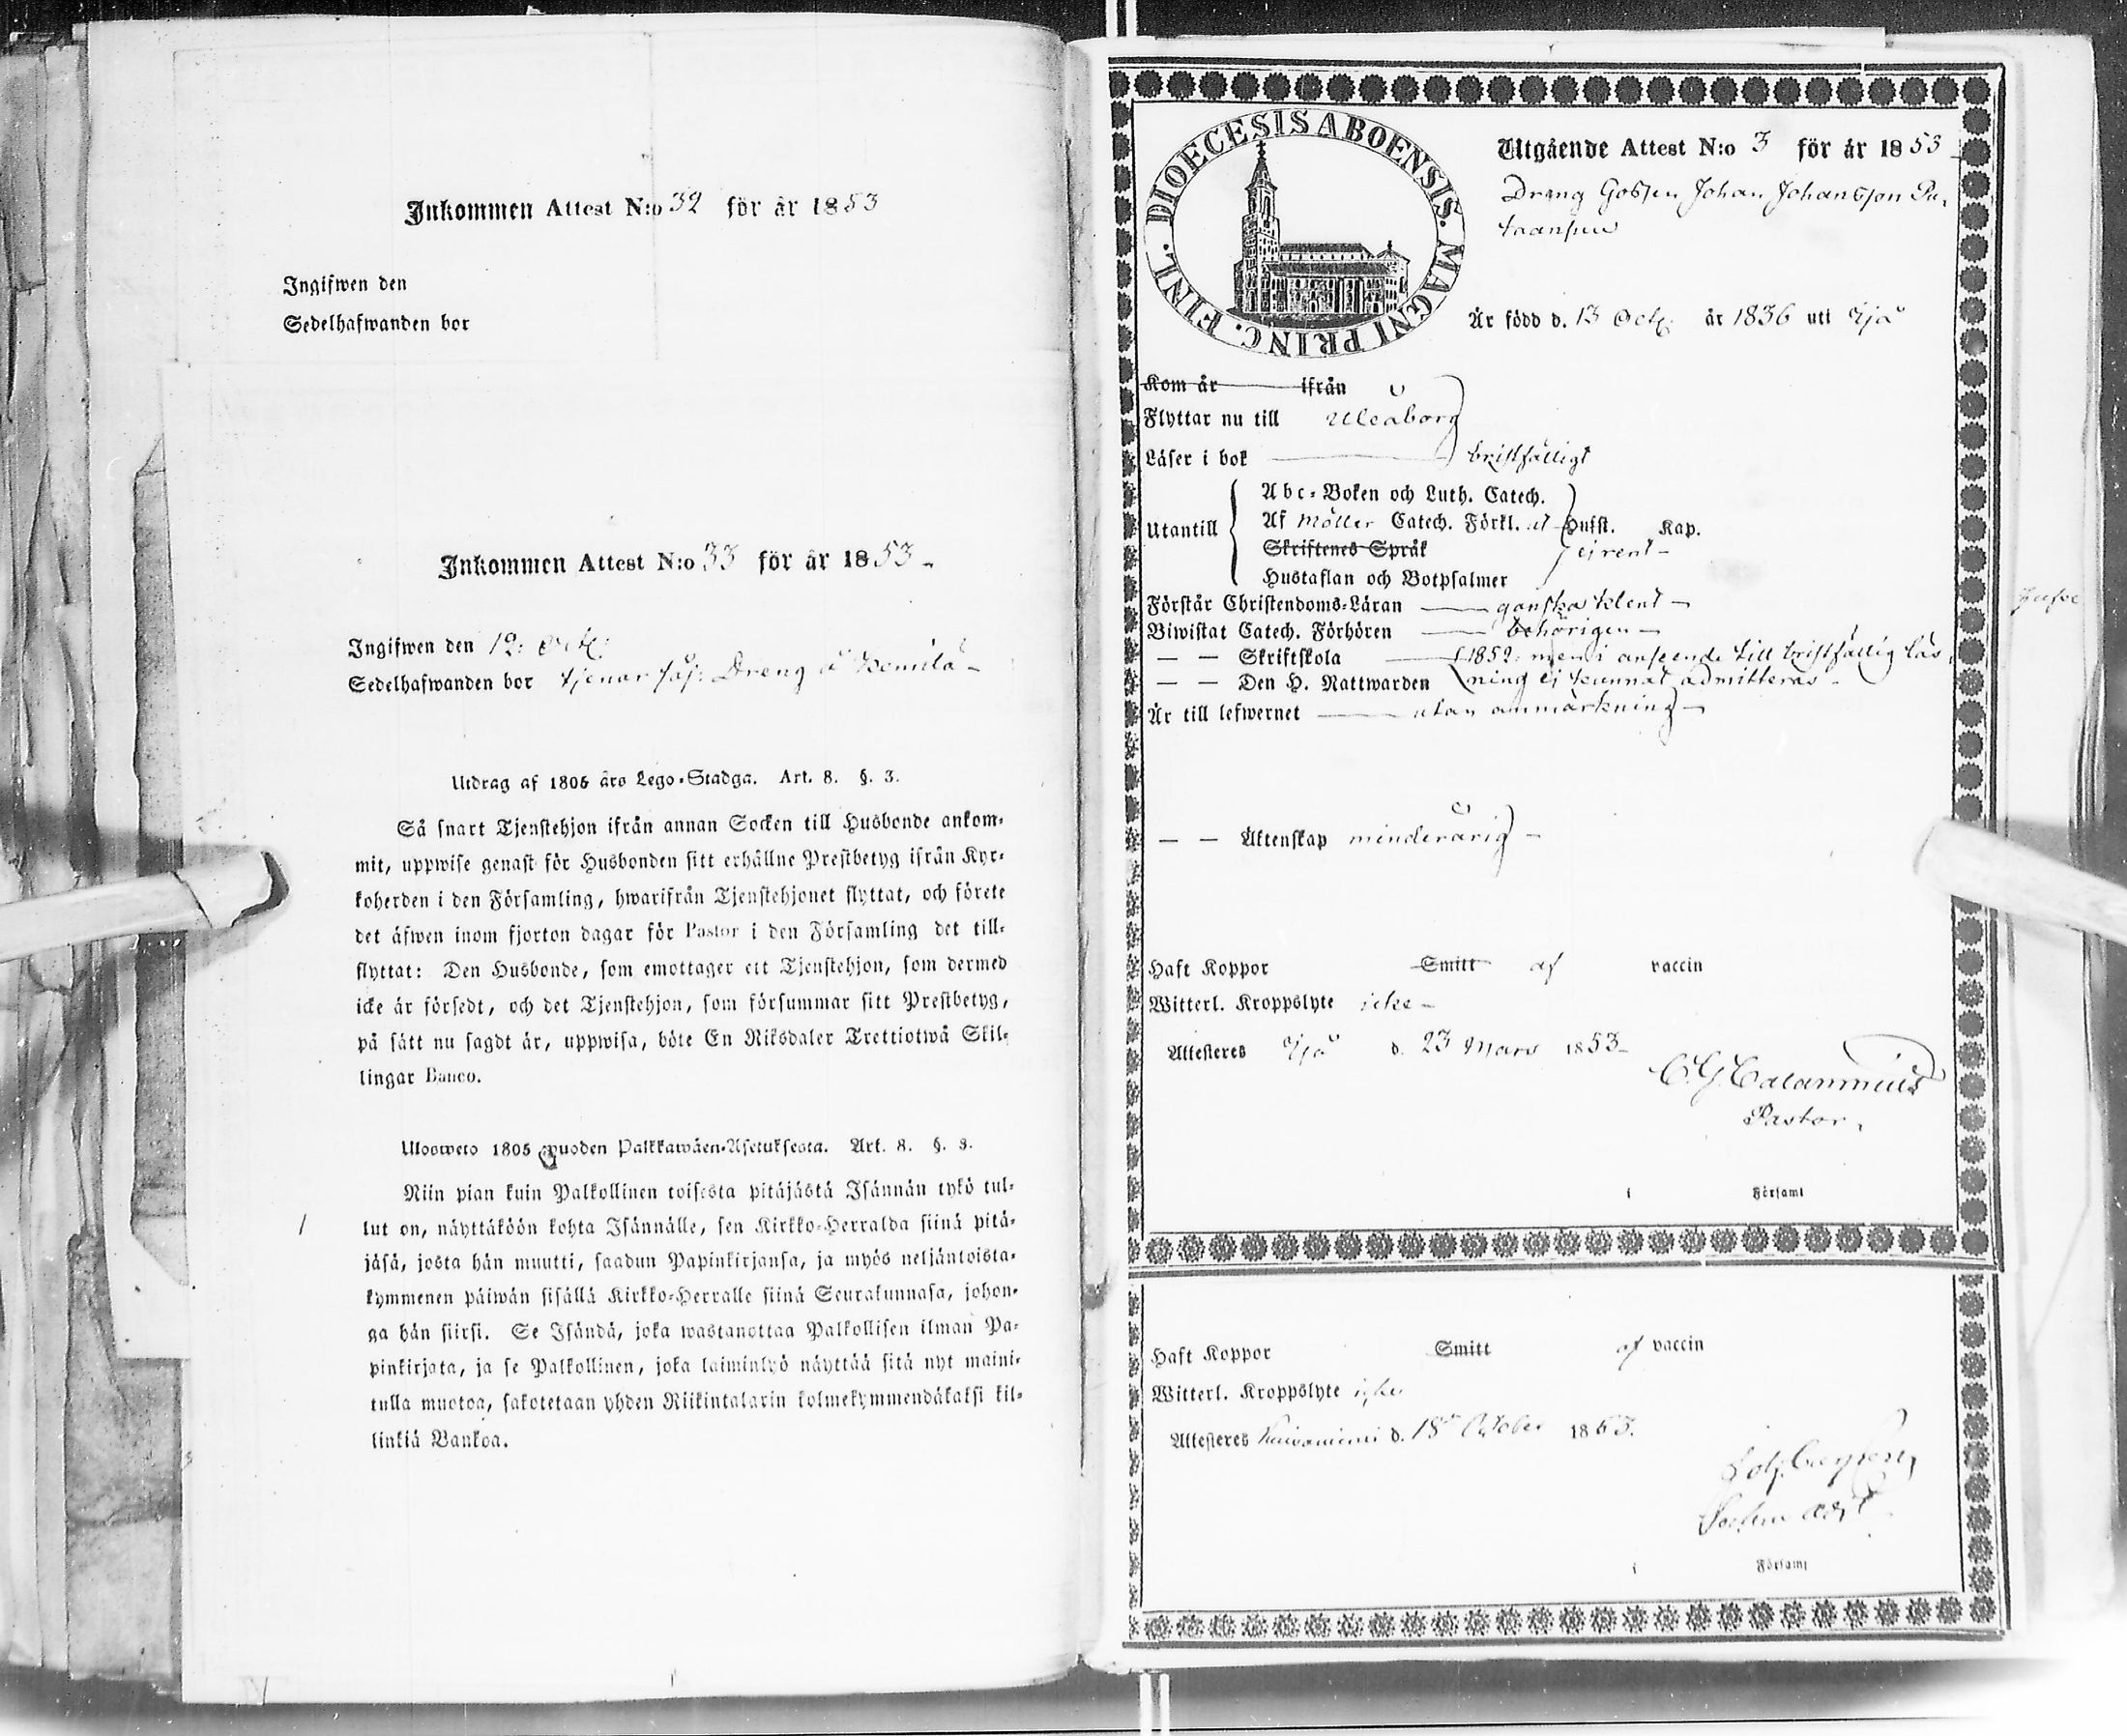 Inkommen Attest N:o 32 för år 1853
Ingifwen den
Sedelhafwanden bor
Inkommen Attest N:o 33 för år 1853
Ingifwen den 12: Oct:
Sedelhafwanden bor tjenar såj: Dreng å
Utdrag af 1805 års Lego-Stadga. Art. 8. §. 3.
Så snart Tjenstehjon ifrån annan Socken till Husbonde ankom-
mit, uppwise genast för Husbonden sitt erhållne Prestbetyg ifrån Kyr-
koherden i den Församling, hwarifrån Tjenstehjonet flyttat, och förete
det äfwen inom fjorton dagar för Pastor i den Församling det till-
flyttat: Den Husbonde, som emottager ett Tjenstehjon, som dermed
icke är försedt, och det Tjenstehjon, som försummar sitt Prestbetyg,
på sätt nu sagdt är, uppwisa, böte En Riksdaler Trettiotwå Skil-
lingar Banco.
Ulosweto 1805 wuoden Palkkawäen-Asetuksesta. Art. 8. §. 3.
Niin pian kuin Palkollinen toisesta pitäjästä Isännän tykö tul-
lut on, näyttäköön kohta Isännälle, sen Kirkko-Herralda siinä pitä-
jäsä, josta hän muutti, saadun Papinkirjansa, ja myös neljäntoista-
kymmenen päiwän sisällä Kirkko-Herralle siinä Seurakunnasa, johon-
ga hän siirsi. Se Isändä, joka wastanottaa Palkollisen ilman Pa-
pinkirjata, ja se Palkollinen, joka laiminlyö näyttää sitä nyt maini-
tulla muotoa, sakotetaan yhden Riikintalarin kolmekymmendäkaksi kil-
linkiä Bankoa.
DIOECESIS ABOENSIS. MAGNI PRINC. FINL.
Utgående Attest N:o 3 för år 1853
Dreng Gossen Johan Johansson Pu-
taansuu
Är född d. 13 Oct: år 1836 uti Ijå
Kom år ifrån
Flyttar nu till Uleåborg
Läser i bok bristfälligt
Utantill
Abc-Boken och Luth. Catech.
Af Möller Catech. Förkl. Hufst. Kap.
Skriftenes Språk ej rent
Hustaflan och Botpsalmer
Förstår Christendoms-Läran ganska klent
Biwistat Catech. Förhören behörigen
— — Skriftskola 1852: men i anseende till bristfällig läs-
— — Den H. Nattwarden ning ej kunnat admitteras
Är till lefwernet utan anmärkning
— — Äktenskap minderårig
Haft Koppor Smitt af vaccin
Witterl. Kroppslyte icke
Attesteres Ijå d. 23 Mars 1853
C. G. Calamnius
Pastor.
i Församl
Haft Koppor Smitt af vaccin
Witterl. Kroppslyte icke
Attesteres Kuivaniemi d. 18 October 1863.
i Församl